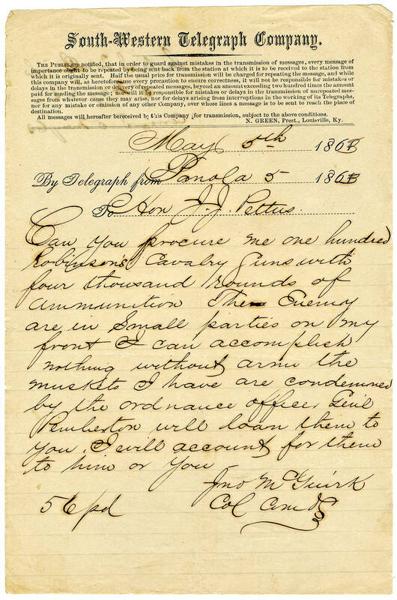 South-Western Telegraph Company.
THE PUBLIC is notified, that in order to guard against mistakes in the transmission of messages, every message of
importance ought to be repeated by being sent back from the station at which it is to be received to the station from
which it is originally sent. Half the usual price for transmission will be charged for repeating the message, and while
this company will, as heretofore, use every precaution to ensure correctness, it will not be responsible for mistakes or
delays in the transmission or delivery of repeated messages, beyond an amount exceeding two hundred times the amount
paid for sending the message; nor will it be responsible for mistakes or delays in the transmission of unrepeated messages
from whatever cause they may arise, nor for delays arising from interruptions in the working of its Telegraphs,
nor for any mistake or omission of any other Company, over whose lines a message is to be sent to reach the place of
destination.
All messages will hereafter be received by this Company for transmission, subject to the above conditions.
N. GREEN, Prest., Louisville, Ky.
May 5th 1863
By Telegraph from Panola 5 1863
To Hon J. J. Pettus
Can you procure me one hundred
Robinson's Cavalry Guns with
four thousand rounds of
ammunition The Enemy
are in Small parties on my
front & I can accomplish
nothing without arms the
muskets I have are condemned
by the ordnance officer Genl
Pemberton will loan them to
you. I will account for them
to him or you
Jno McGuirk
Col Comdg
56 pd